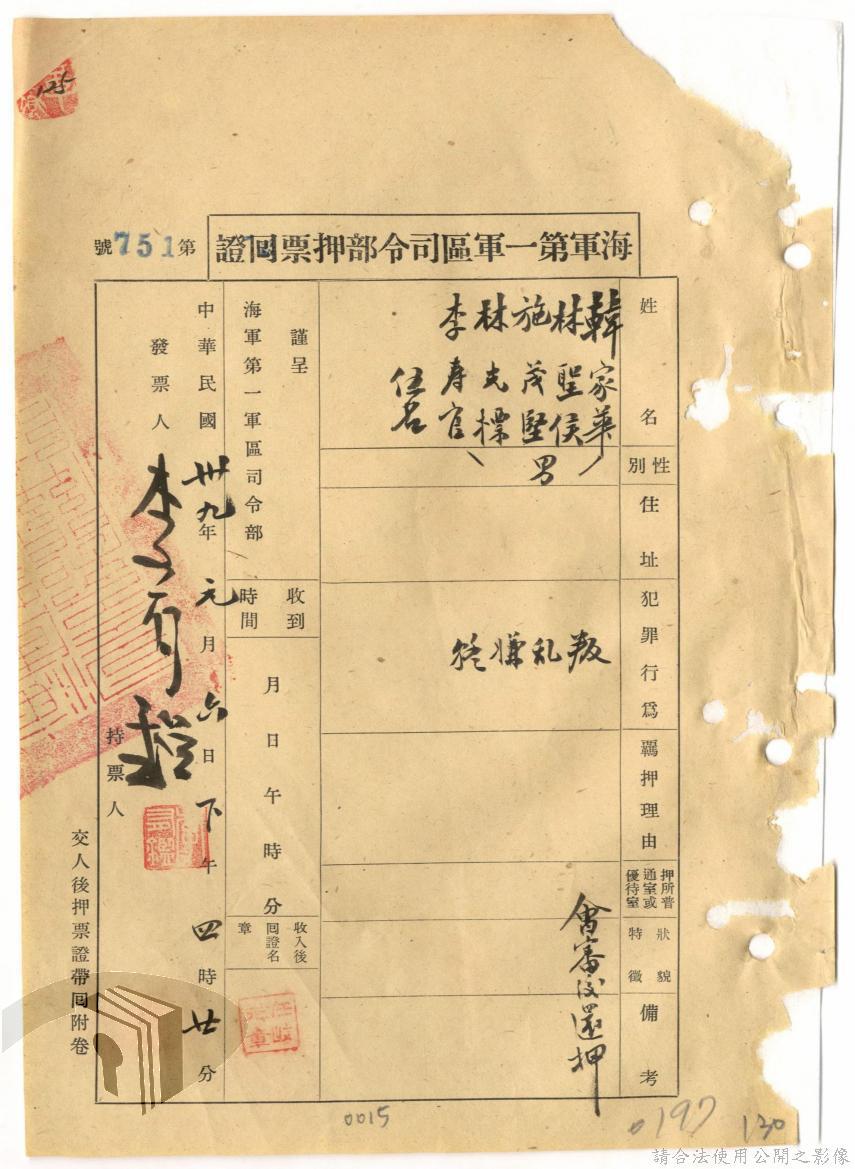 125
海軍第一軍區司令部押票回證
第751號
姓名
韓家華
林聖侯
施茂堅
林光標
李壽官
伍名
性別
男
住址
犯罪行為
叛乱嫌疑
羈押理由
押所普通室或優待室
狀貌特徵
備考
會審後還押
謹呈
海軍第一軍區司令部
收到時間
月日午時分
收入後回證名章
中華民國卅九年元月六日下午四時廿分
發票人
持票人
交人後押票證帶回附卷
0015
197
130
請合法使用公開之影像